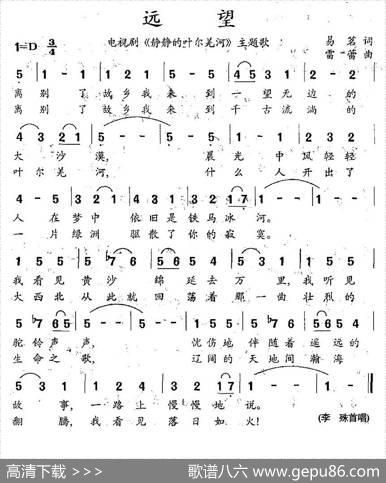 远 望
1=D 3/4
电视剧《静静的叶尔羌河》主题歌
易 茗 词
雷 蕾 曲
5 | 1 - 1 | 1 - 5 | 5 - 1 | 1 - 5 | 4 5 3 1 | 2 - 5 |
离 别 了 故 乡 我 来 到 一 望 无 边 的
离 别 了 故 乡 我 来 到 千 古 流 淌 的
4 - 3 | 2 1 - | 5 - - | 5 - - | 5 - 1 | 1 - 2 | 2 3 2 |
大 沙 漠, 晨 光 中 风 轻 轻
叶 尔 羌 河, 什 么 人 开 出 了
4 - 5 | 3 2 1 - | 4 - 3 | 3 2 1 7 | 1 - - | 1 - - |
人 在 梦 中 依 旧 是 铁 马 冰 河。
一 片 绿 洲 驱 散 了 你 的 寂 寞。
1 | 5 5 5 | 1 5 5 | 5 6 5 | 2 - - | 2 - 1 | 5 5 5 |
我 看 见 黄 沙 绵 延 去 万 里, 我 听 见
大 西 北 从 此 就 回 荡 着 那 一 曲 壮 烈 的
5 ♭7 6 5 | 5 - - | 5 - - | 5 ♭7 6 | 5 - 4 | 3 2 1 | 2 - 5 |
驼 铃 声 声, 忧 伤 地 伴 随 着 遥 远 的
生 命 之 歌, 辽 阔 的 天 地 间 瀚 海
5 3 1 | 1 - 2 | 4 - 3 | 2 3 2 | 1 7 - | 1 - - | 1 - - |
故 事, 一 路 上 慢 慢 地 说。
翻 腾, 我 看 见 落 日 如 火!
(李 殊首唱)
高清下载 >>>
歌谱八六 www.gepu86.com